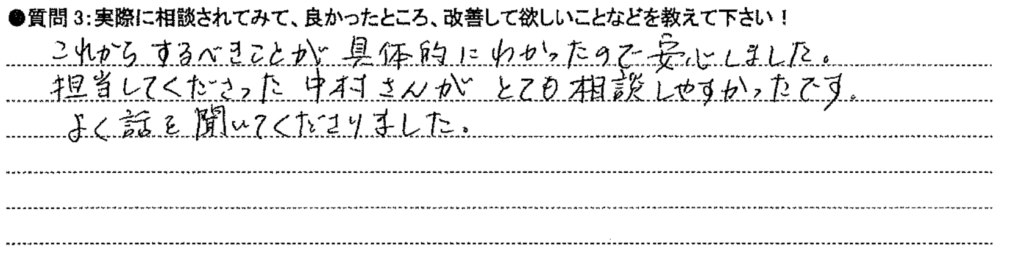 ●質問3:実際に相談されてみて、良かったところ、改善して欲しいことなどを教えて下さい！
これからするべきことが具体的にわかったので安心しました。
担当してくださった中村さんがとても相談しやすかったです。
よく話を聞いてくださりました。